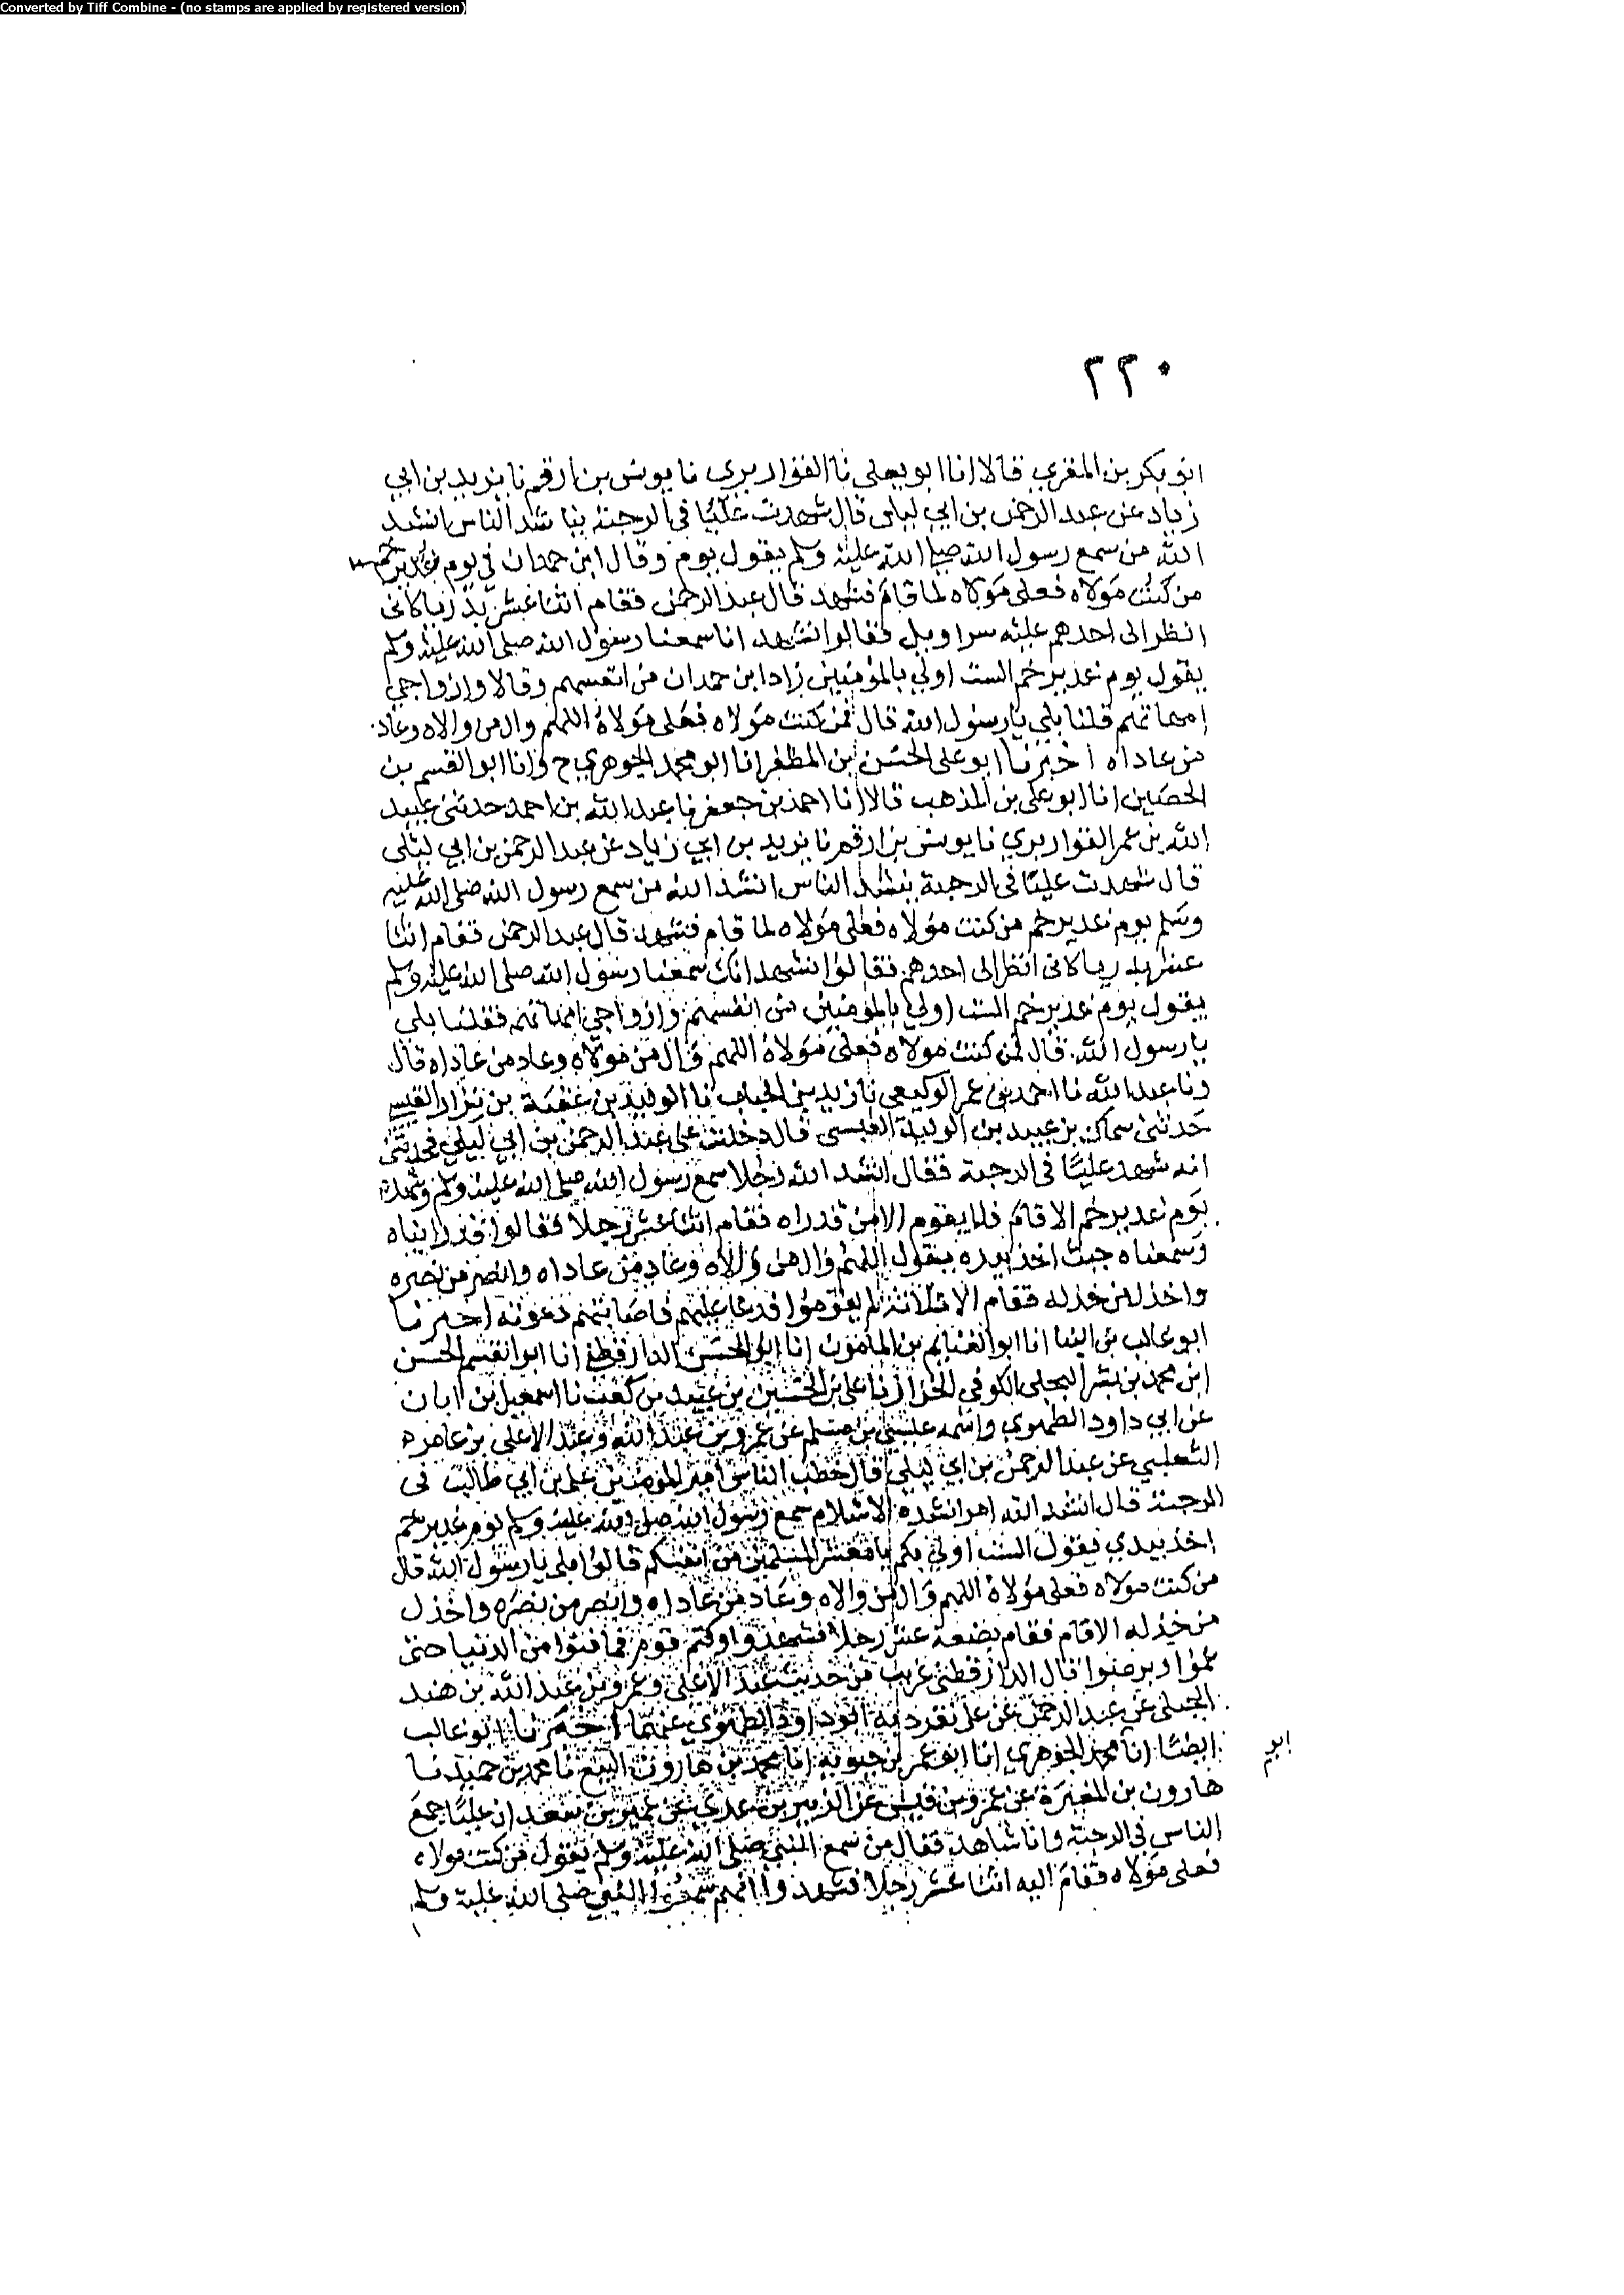 Converted by Tiff Combine - (no stamps are applied by registered version)
٢٢٠
ابو بكر بن المقري قالا انا ابو يعلى نا القواريري نا يونس بن ارقم نا يزيد بن ابي
زياد عن عبد الرحمن بن ابي ليلى قال شهدت عليا في الرحبة يناشد الناس انشد
الله من سمع رسول الله صلى الله عليه وسلم يقول يوم وقال ابن حمدان في يوم غدير خم
من كنت مولاه فعلي مولاه لما قام فشهد قال عبد الرحمن فقام اثنا عشر بدريا كاني
انظر الى احدهم عليه سراويل فقالوا نشهد انا سمعنا رسول الله صلى الله عليه وسلم
يقول يوم غدير خم الست اولى بالمؤمنين زاد ابن حمدان من انفسهم وقالا وازواجي
امهاتهم قلنا بلى يا رسول الله قال فمن كنت مولاه فعلي مولاه اللهم وال من والاه وعاد
من عاداه اخبرنا ابو علي الحسن بن المظفر انا ابو محمد الجوهري ح وانا ابو القسم بن
الحصين انا ابو علي بن المذهب قالا انا احمد بن جعفر نا عبد الله بن احمد حدثني عبيد
الله بن عمر القواريري نا يونس بن ارقم نا يزيد بن ابي زياد عن عبد الرحمن بن ابي ليلى
قال شهدت عليا في الرحبة ينشد الناس انشد الله من سمع رسول الله صلى الله عليه
وسلم يوم غدير خم من كنت مولاه فعلي مولاه لما قام فشهد قال عبد الرحمن فقام اثنا
عشر بدريا كاني انظر الى احدهم فقالوا نشهد انا سمعنا رسول الله صلى الله عليه وسلم
يقول يوم غدير خم الست اولى بالمؤمنين من انفسهم وازواجي امهاتهم فقلنا بلى
يا رسول الله قال فمن كنت مولاه فعلي مولاه اللهم وال من مولاه وعاد من عاداه قال
ونا عبد الله نا احمد بن عمر الوكيعي نا زيد بن الحباب نا الوليد بن عقبة بن نزار القيسي
حدثني سماك بن عبيد بن الوليد القيسي قال دخلت على عبد الرحمن بن ابي ليلى فحدثني
انه شهد عليا في الرحبة فقال انشد الله رجلا سمع رسول الله صلى الله عليه وسلم وشهده
يوم غدير خم الا قام فلا يقوم الا من قد راه فقام اثنا عشر رجلا فقالوا قد رايناه
وسمعناه حيث اخذ بيده يقول اللهم وال من والاه وعاد من عاداه وانصر من نصره
واخذل من خذله فقام الا ثلاثة لم يقوموا فدعا عليهم فاصابتهم دعوته اخبرنا
ابو غالب بن البنا انا ابو الغنايم بن المامون انا ابو الحسن الدارقطني انا ابو القسم الحسن
ابن محمد بن بشر البجلي الكوفي الخزاز نا علي بن الحسين بن عبيد بن كعب نا اسمعيل بن ابان
عن ابي داود الطهوي واسمه عيسى بن مسلم عن عمرو بن عبد الله وعبد الاعلى بن عامر
الثعلبي عن عبد الرحمن بن ابي ليلى قال خطب الناس امير المؤمنين علي بن ابي طالب في
الرحبة قال انشد الله امرا نشدة الاسلام سمع رسول الله صلى الله عليه وسلم يوم غدير خم
اخذ بيدي يقول الست اولى بكم يا معشر المسلمين من انفسكم قالوا بلى يا رسول الله قال
من كنت مولاه فعلي مولاه اللهم وال من والاه وعاد من عاداه وانصر من نصره واخذل
من خذله الا قام فقام بضعة عشر رجلا فشهدوا وكتم قوم فما فنوا من الدنيا حتى
عموا وبرصوا قال الدارقطني غريب من حديث عبد الاعلى وعمرو بن عبد الله بن هند
الجملي عن عبد الرحمن عن علي تفرد به ابو داود الطهوي عنهما اخبرنا ابو غالب
ايضا انا محمد الجوهري انا ابو عمر بن حيويه انا محمد بن هارون البيع نا محمد بن حميد نا
ابو
هارون بن المغيرة عن عمرو بن قيس عن الزبير بن عدي عن عمير بن سعد ان عليا جمع
الناس في الرحبة وانا شاهد فقال من سمع النبي صلى الله عليه وسلم يقول من كنت مولاه
فعلي مولاه فقام اليه اثنا عشر رجلا فشهدوا انهم سمعوا النبي صلى الله عليه وسلم